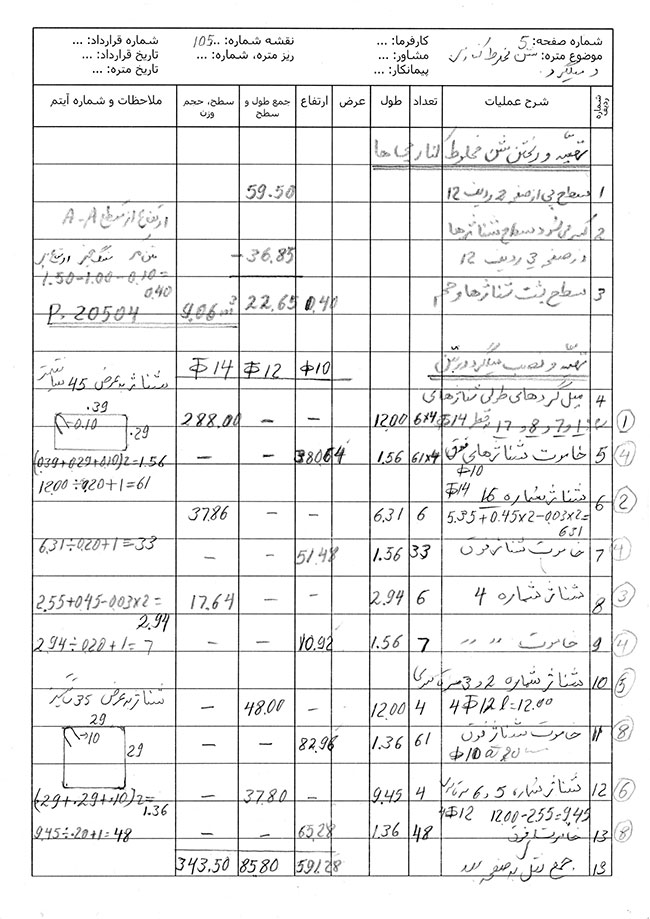 شماره صفحه: 5 کارفرما: ... نقشه شماره: ..105 شماره قرارداد: ...
موضوع متره: شن مخلوط کناری مشاور: ... ریز متره، شماره: ... تاریخ قرارداد: ...
و میلگرد. پیمانکار: ... تاریخ متره: ...
شماره ردیف شرح عملیات تعداد طول عرض ارتفاع جمع طول و سطح سطح، حجم وزن ملاحظات و شماره آیتم
تهیه و ریختن شن مخلوط کناری ها
1 سطح پی از صفحه 2 ردیف 12 59.50
2 کسر می شود سطح شناژها ارتفاع از مقطع A-A
در صفحه ردیف 12 -36.85
1.50-1.00-0.10=
0.40
3 سطح شناژها و حجم 0.40 22.65 9.06 m3 P. 20504
تهیه و نصب میلگرد در بتن
Φ10 Φ12 Φ14 شناژ به عرض 45 سانتیمتر
4 میل گردهای طولی شناژهای
1 و 7 و 8 و 17 Φ14 6x4 12.00 – – 288.00 .39 0.10 .29 ①
5 خاموت شناژهای فوق Φ10 61x4 1.56 380.64 – – (.039+0.29+0.10)2=1.56 ④
12.00÷0.20+1=61
6 شناژ شماره 16 Φ14 ②
5.35+0.45x2-0.03x2= 6 6.31 – – 37.86
6.31
7 خاموت شناژ فوق 33 1.56 51.48 – – 6.31÷0.20+1=33 ④
8 شناژ شماره 4 6 2.94 – – 17.64 2.55+0.45-0.03x2= ③
2.94
9 خاموت 〃 〃 7 1.56 10.92 – – 2.94÷0.20+1=7 ④
10 شناژ شماره 2 و 3 ⑤
4Φ12 l=12.00 4 12.00 – 48.00 – شناژ به عرض 35
11 خاموت شناژ فوق 61 1.36 82.96 – – 29 10 29 ⑧
Φ10 @ 20
12 شناژ شماره 5 و 6 4 9.45 – 37.80 – (.29+.29+.10)2= ⑥
4Φ12 12.00-2.55=9.45 1.36
13 خاموت فوق 48 1.36 65.28 – – 9.45÷.20+1=48 ⑧
13 جمع نقل به صفحه بعد 591.28 85.80 343.50